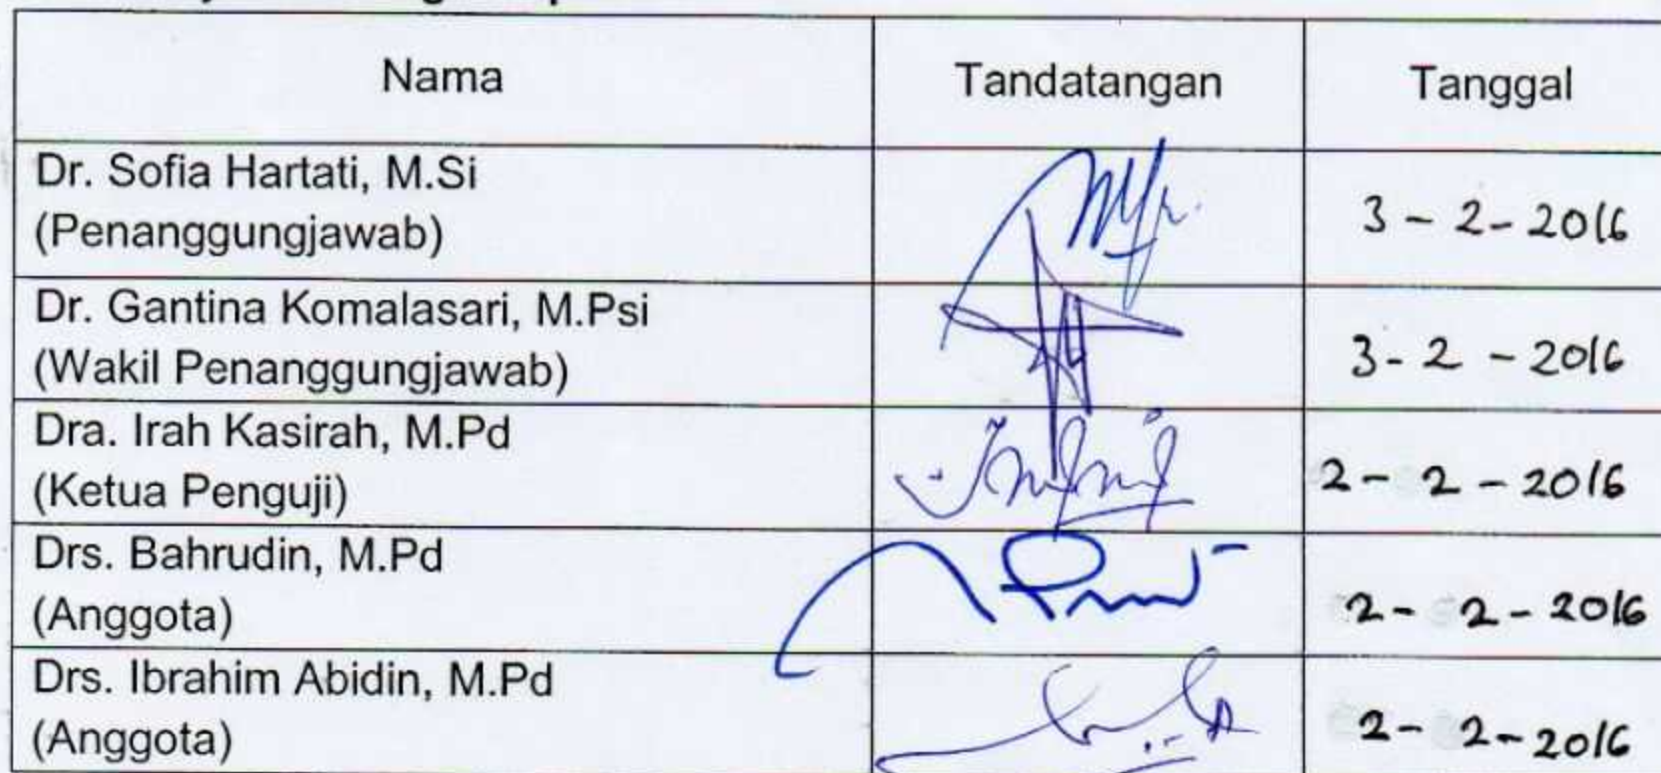 Nama Tandatangan Tanggal
Dr. Sofia Hartati, M.Si
(Penanggungjawab) 3 - 2 - 2016
Dr. Gantina Komalasari, M.Psi
(Wakil Penanggungjawab) 3 - 2 - 2016
Dra. Irah Kasirah, M.Pd
(Ketua Penguji) 2 - 2 - 2016
Drs. Bahrudin, M.Pd
(Anggota) 2 - 2 - 2016
Drs. Ibrahim Abidin, M.Pd
(Anggota) 2 - 2 - 2016